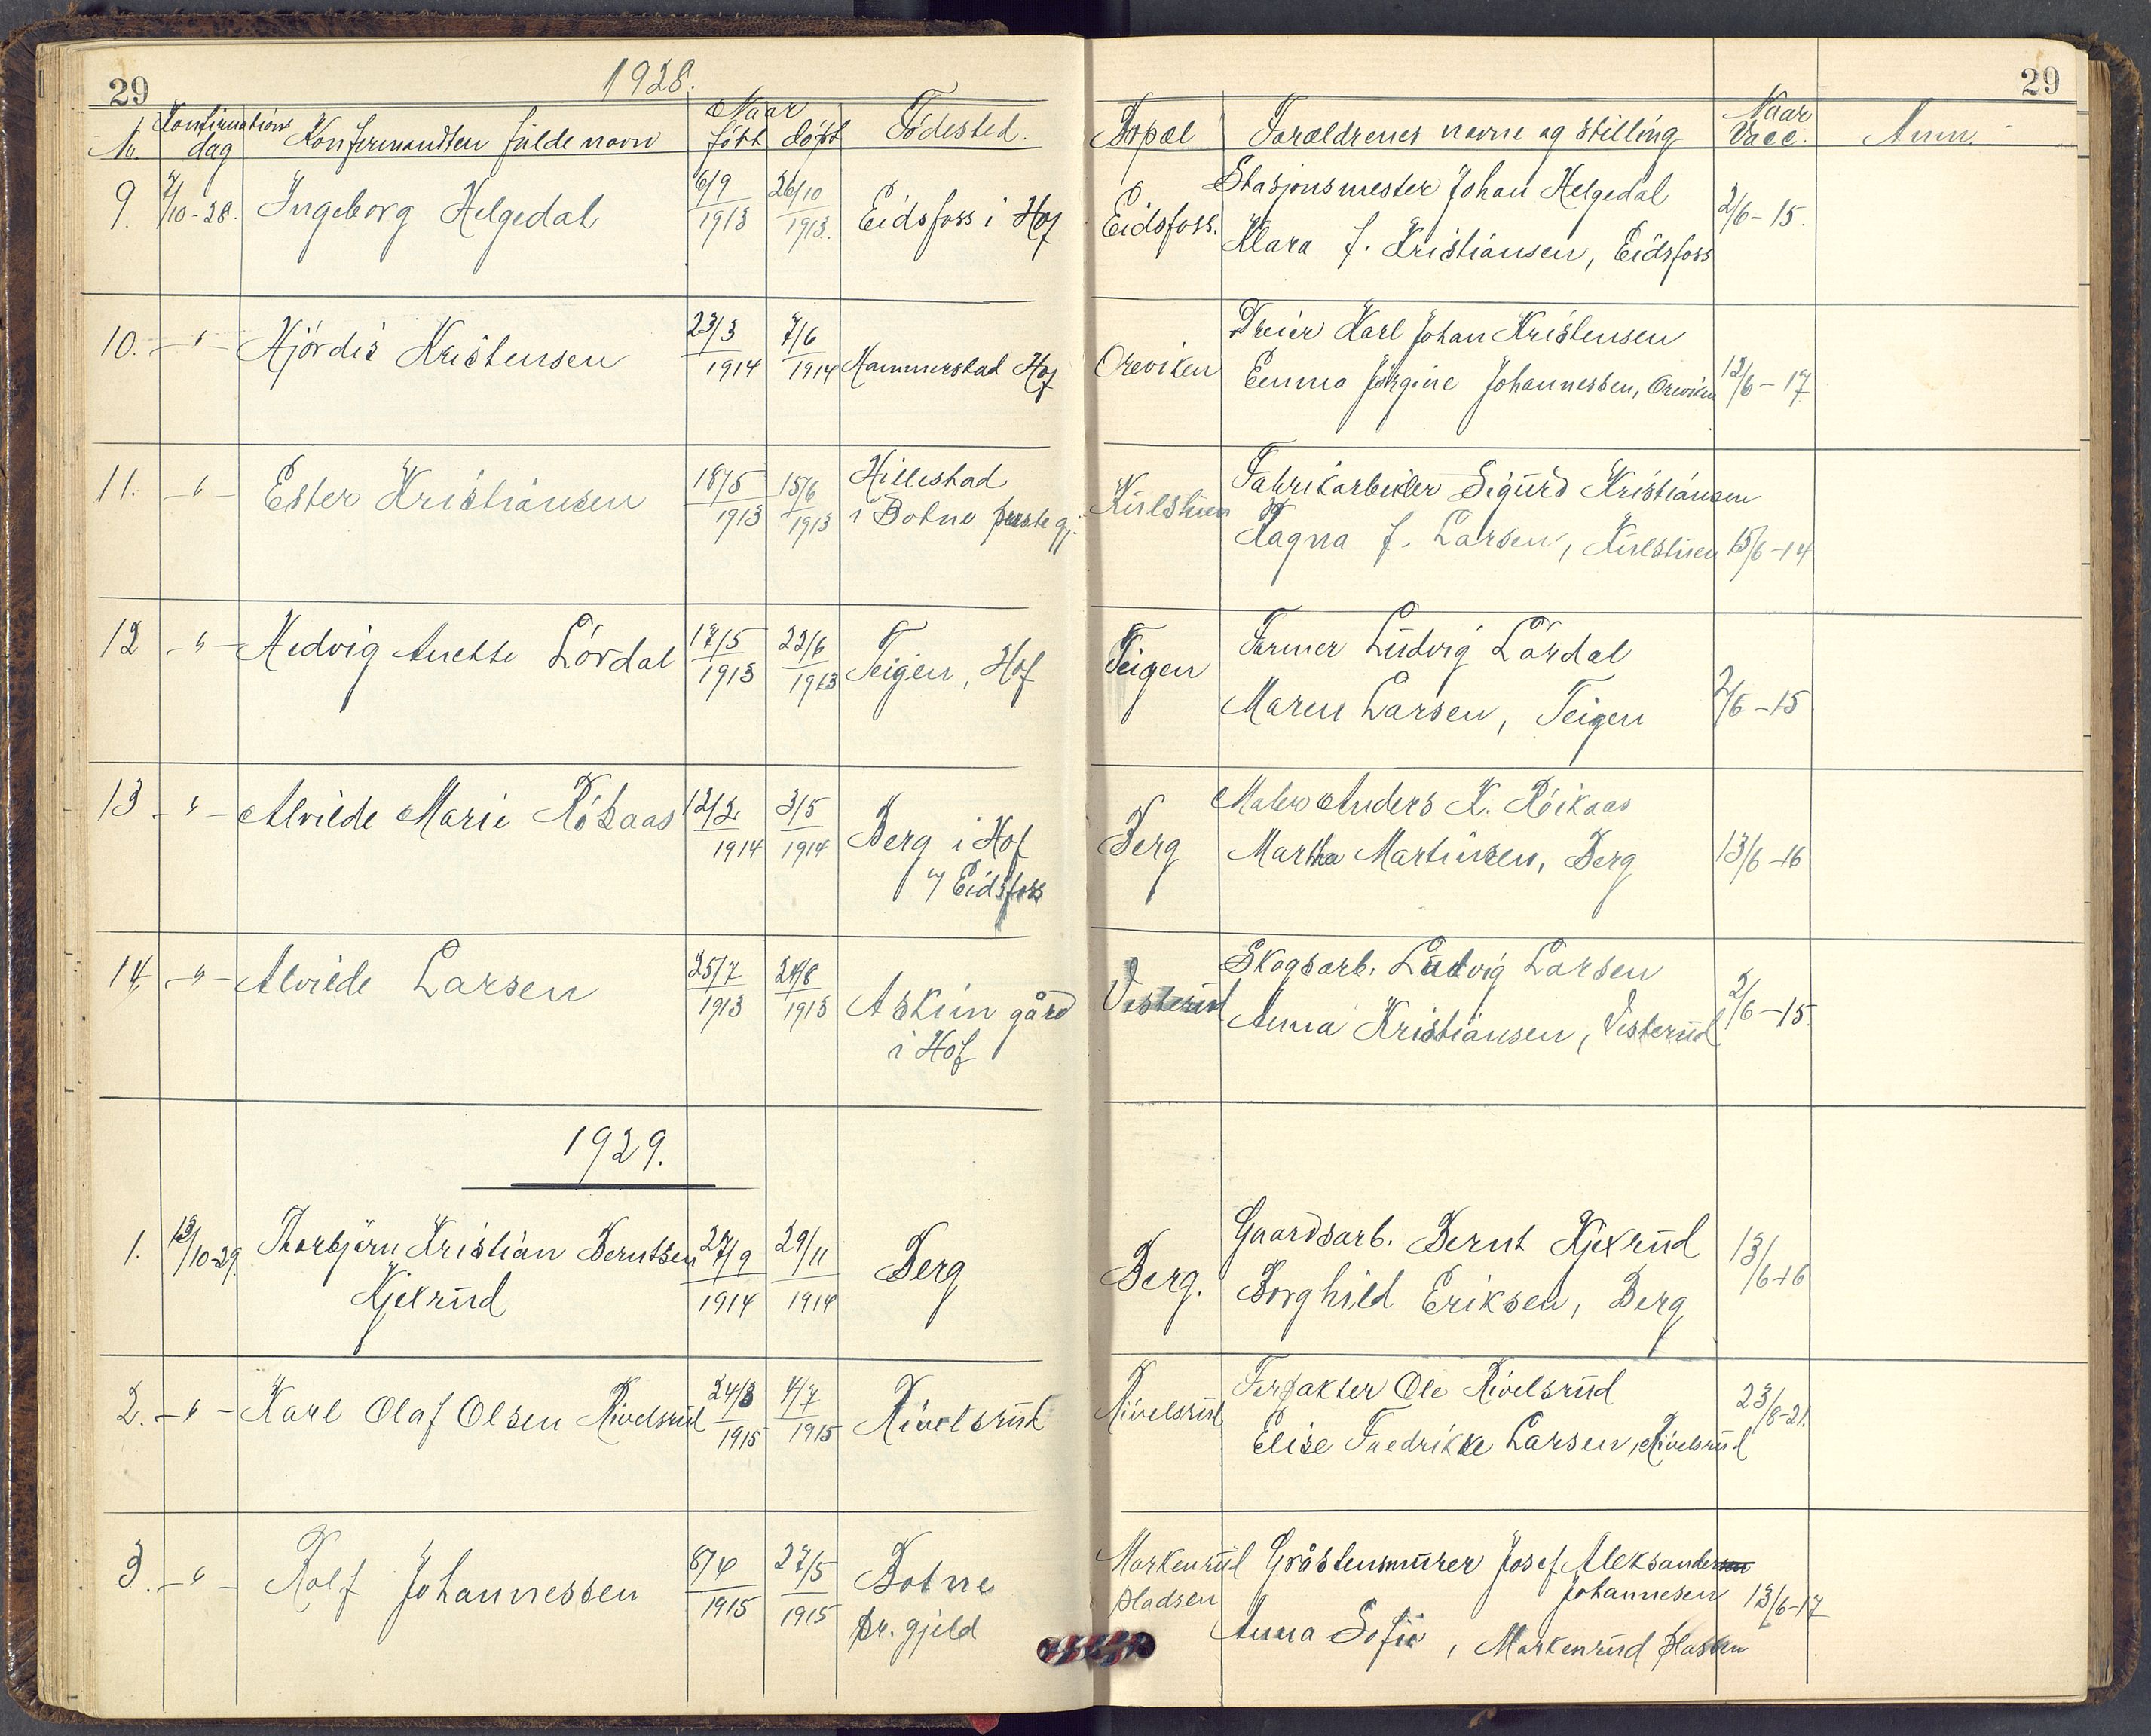 29
1928.
29
N. Konfirmations dag Konfirmandten fulde navn Naar født døpt Fødested. Bopæl Forældrenes navne og stilling Naar Vacc. Anm.
9. 7/10-28. Ingeborg Helgedal 6/9 1913 26/10 1913. Eidsfoss i Hof Eidsfoss. Stasjonsmester Johan Helgedal
Klara f. Kristiansen, Eidsfoss 2/6-15.
10. -"- Hjördis Kristensen 23/3 1914 7/6 1914 Hammerstad Hof Oreviken Dreier Karl Johan Kristensen
Emma Jørgine Johannessen, Oreviken 12/6-17
11. -"- Ester Kristiansen 18/5 1913 15/6 1913 Hillestad
i Botne prestegj. Fabrikarbeider Sigurd Kristiansen
Ragna f. Larsen, 15/6-14
12 -"- Hedvig Anette Lördal 17/5 1913 22/6 1913 Teigen, Hof Teigen Former Ludvig Lördal
Maren Larsen, Teigen 2/6-15
13 -"- Alvilde Marie Rökaas 12/2 1914 3/5 1914 Berg i Hof
v/ Eidsfoss Berg Maler Anders K. Röikaas
Martha Martinsen, Berg 13/6-16
14. -"- Alvilde Larsen 25/7 1913 24/8 1913 Askim gård
i Hof Vesterud Skogsarb. Ludvig Larsen
Anna Kristiansen, Vesterud 2/6-15.
1929.
1. 13/10-29. Thorbjörn Kristian Berntsen
Kjexrud 27/9 1914 29/11 1914 Berg Berg. Gaardsarb. Bernt Kjexrud
Borghild Eriksen, Berg 13/6-16
2. -"- Karl Olaf Olsen Rivelsrud 24/3 1915 4/7 1915 Rivelsrud Rivelsrud Ole Rivelsrud
Elise Fredrikke Larsen, Rivelsrud 23/8-21.
3. -"- Rolf Johannessen 8/4 1915 27/5 1915 Botne
pr. gjeld Markenrud
pladsen Gråstensmurer Josef Aleksander
Johannesen
Anna Sofie, Markenrud pladsen 13/6-17